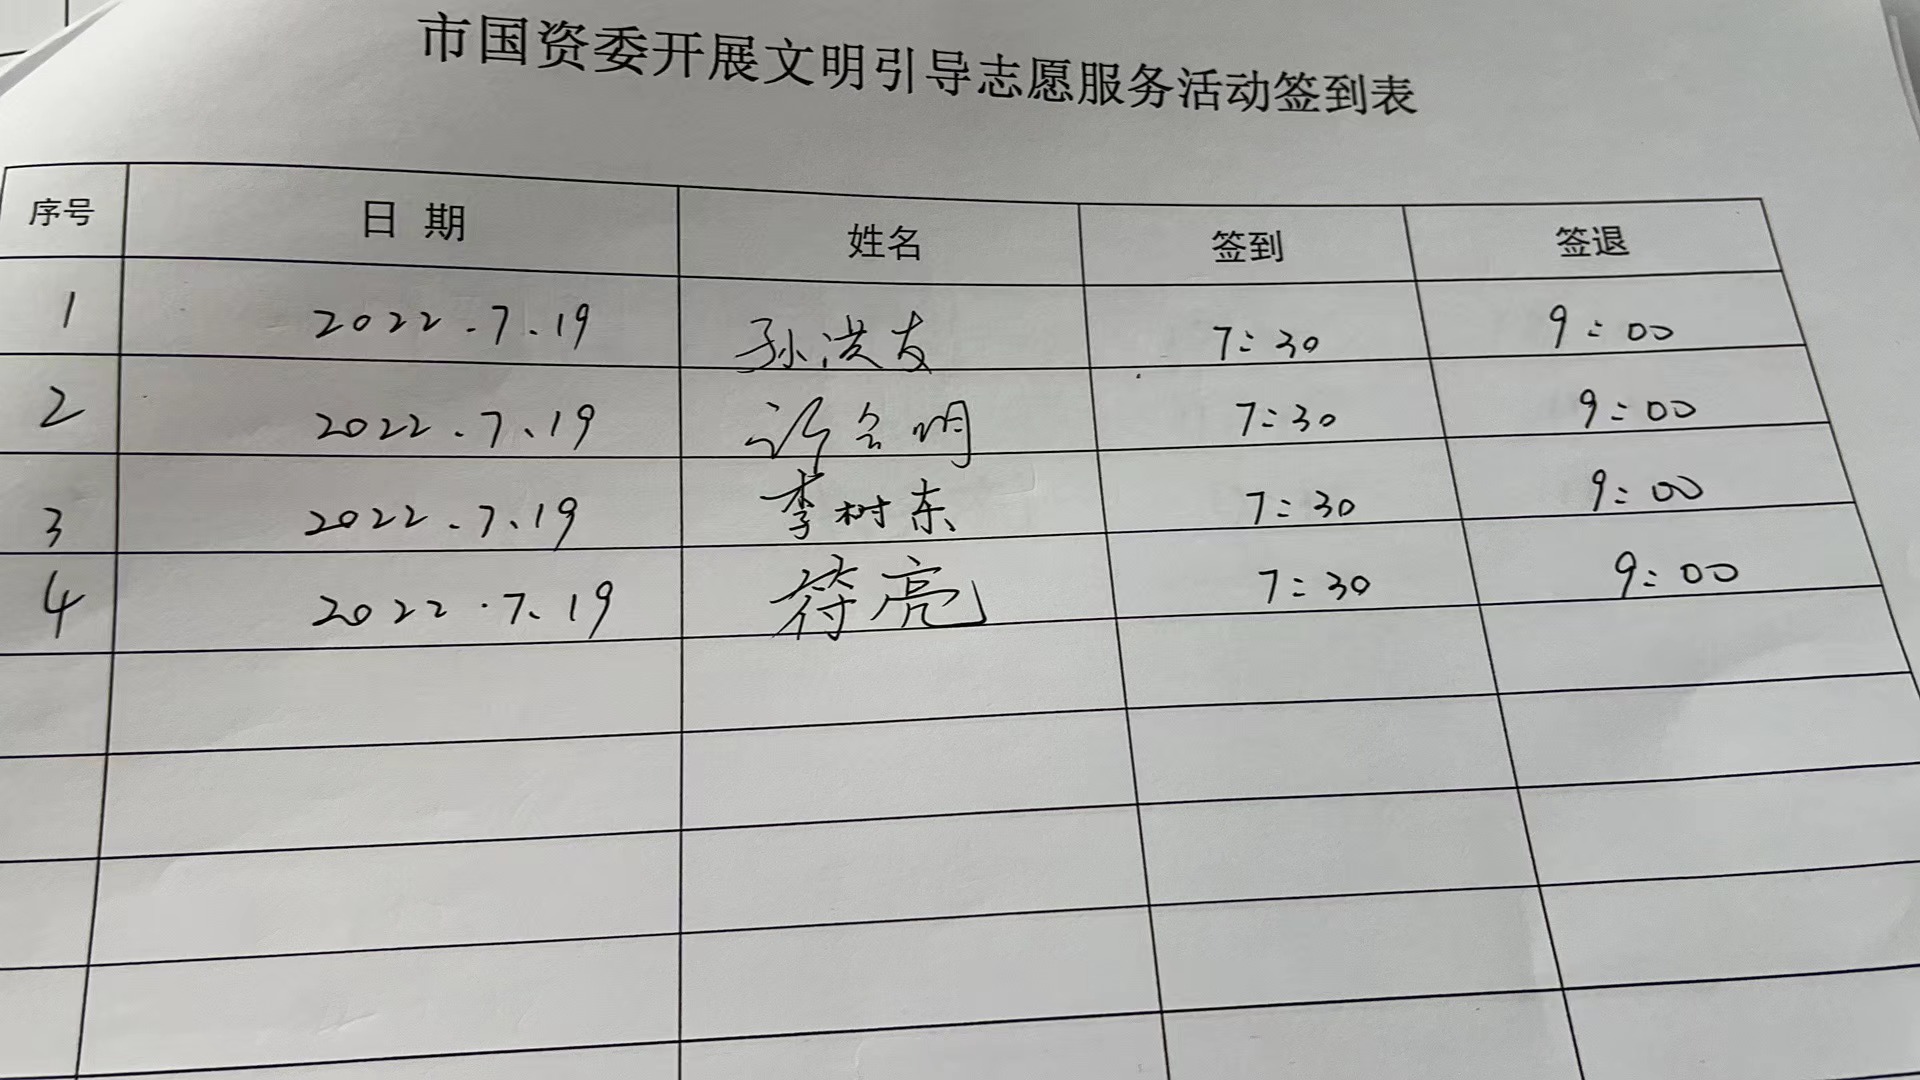 市国资委开展文明引导志愿服务活动签到表
序号 日 期 姓名 签到 签退
1 2022.7.19 孙洪友 7:30 9:00
2 2022.7.19 许会明 7:30 9:00
3 2022.7.19 李树东 7:30 9:00
4 2022.7.19 符亮 7:30 9:00